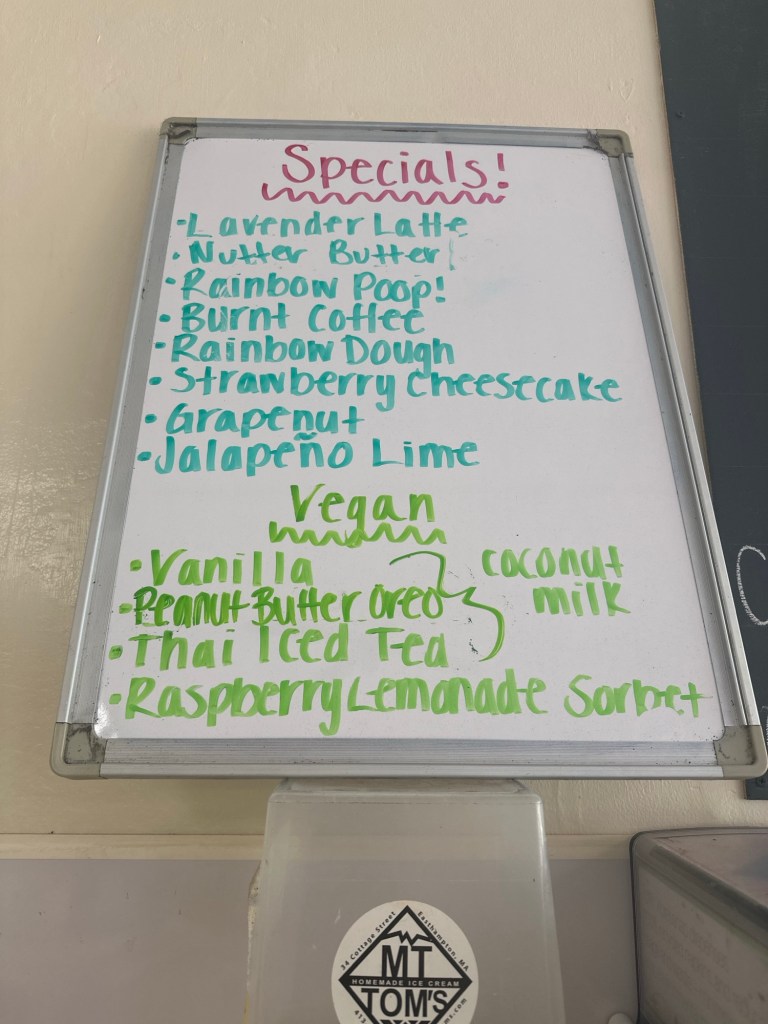 Specials!
• Lavender Latte
• Nutter Butter
• Rainbow Poop!
• Burnt Coffee
• Rainbow Dough
• Strawberry Cheesecake
• Grapenut
• Jalapeño Lime
Vegan
• Vanilla
• Peanut Butter Oreo
• Thai Iced Tea
coconut
milk
• Raspberry Lemonade Sorbet
34 Cottage Street Easthampton, MA
MT
HOMEMADE ICE CREAM
TOM'S
413